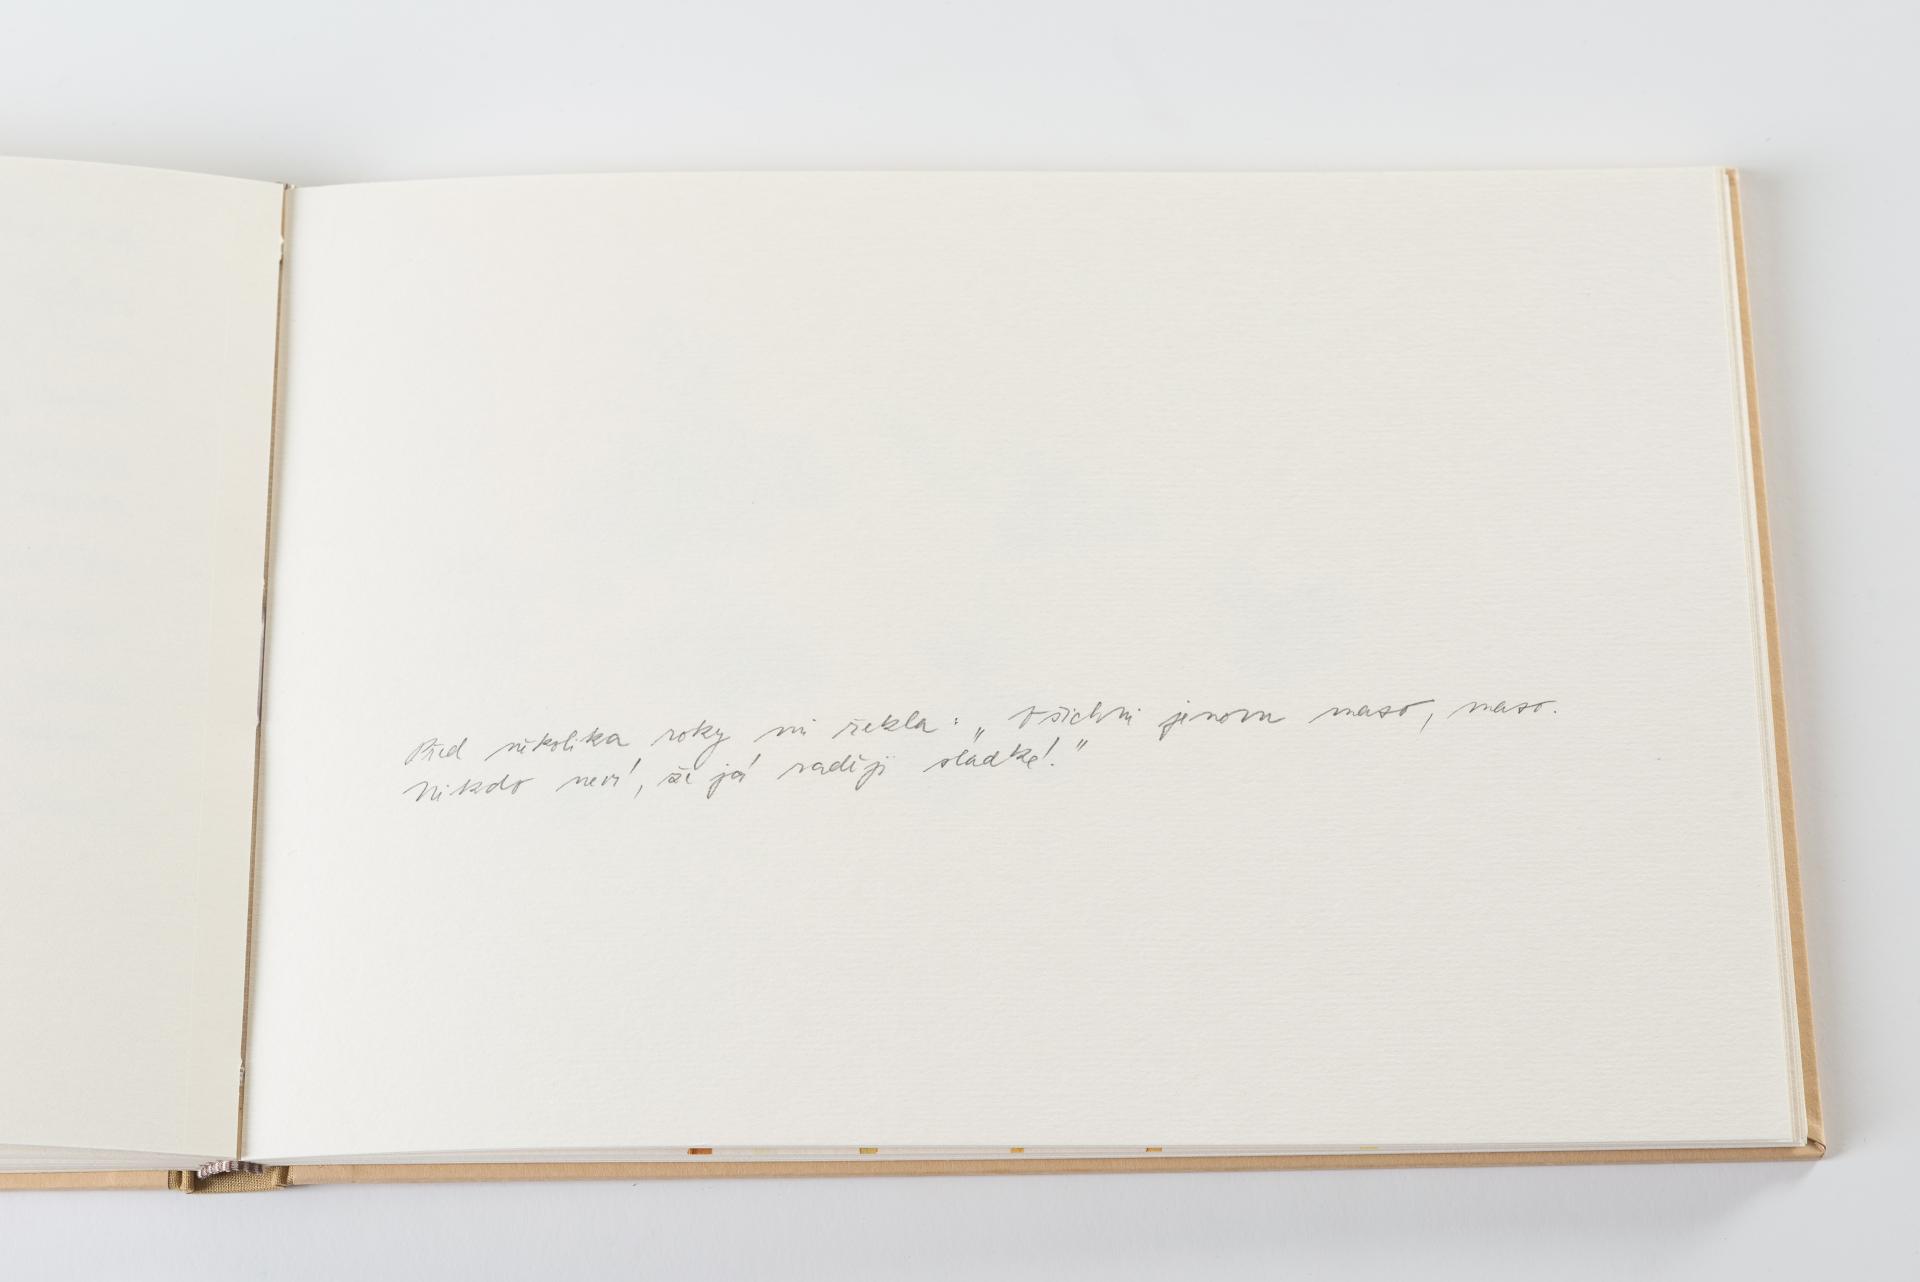 Před několika roky mi řekla: „Všichni jenom maso, maso.
Nikdo neví, že já raději sladké!"